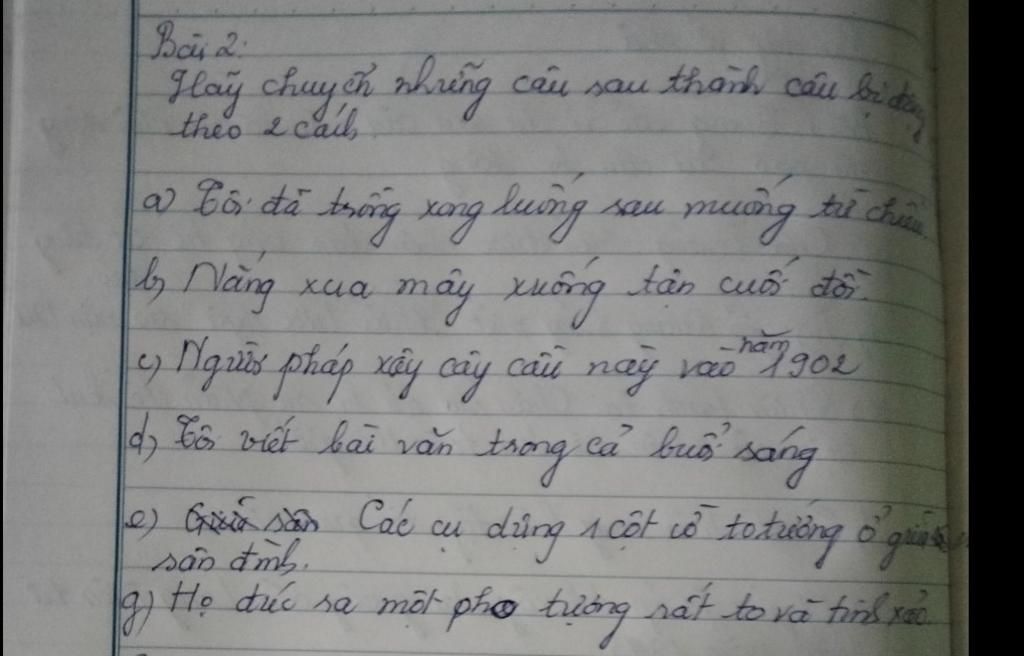 Bài 2:
Hãy chuyển những câu sau thành câu bị động
theo 2 cách
a) Tôi đã trồng xong luống rau muống từ chiều
b) Nắng xua mây xuống tận cuối đồi.
c) Người pháp xây cây cầu này vào năm 1902
d) Tôi viết bài văn trong cả buổi sáng
e) Các cụ dùng 1 cột cờ to tướng ở giữa
sân đình.
g) Họ đúc ra một pho tượng sắt to và tinh xảo.